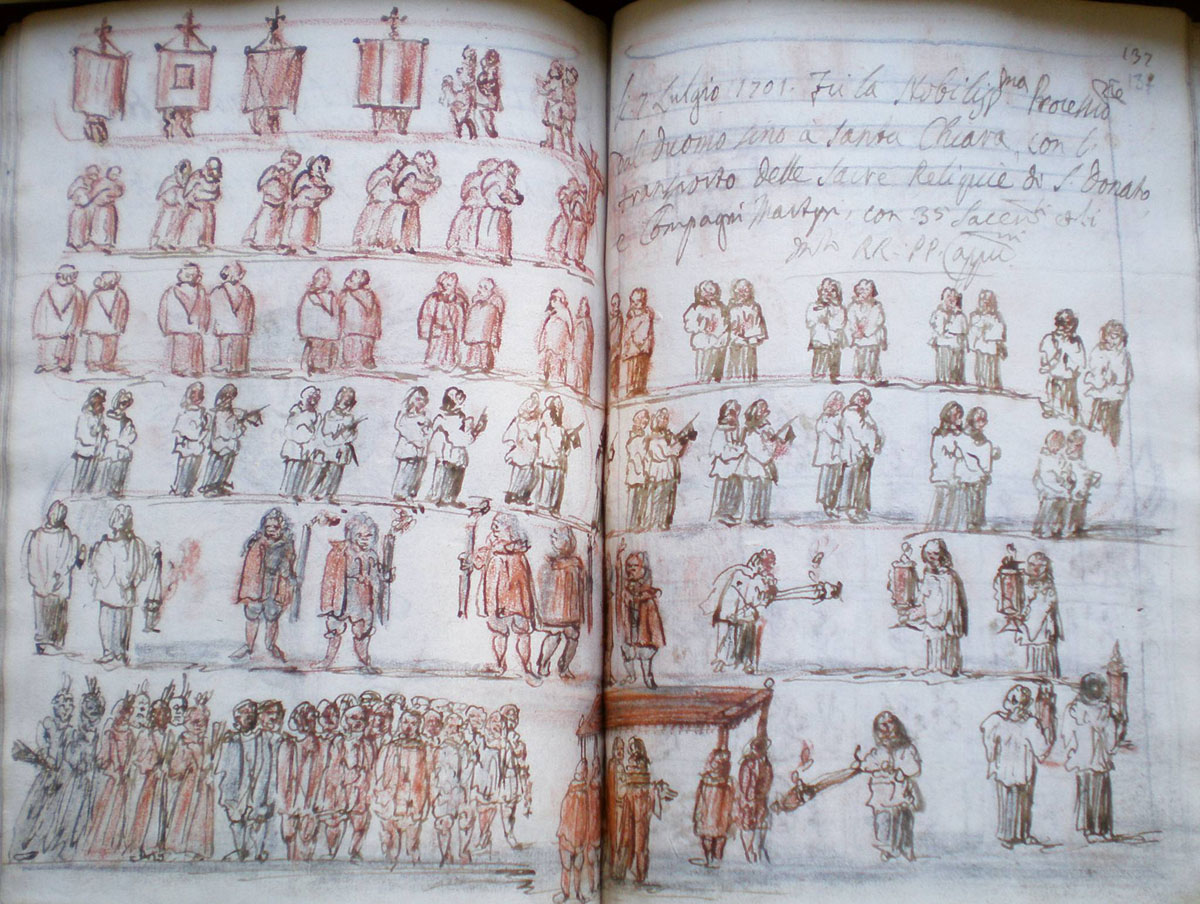 137
137
7 Luglio 1701. Fu la Nobiliss ma Process ne
dal Duomo sino à Santa Chiara, con il
transporto delle Sacre Reliquie di S Donato
e Compagni Martyri, con 35
RR: PP: Cappni